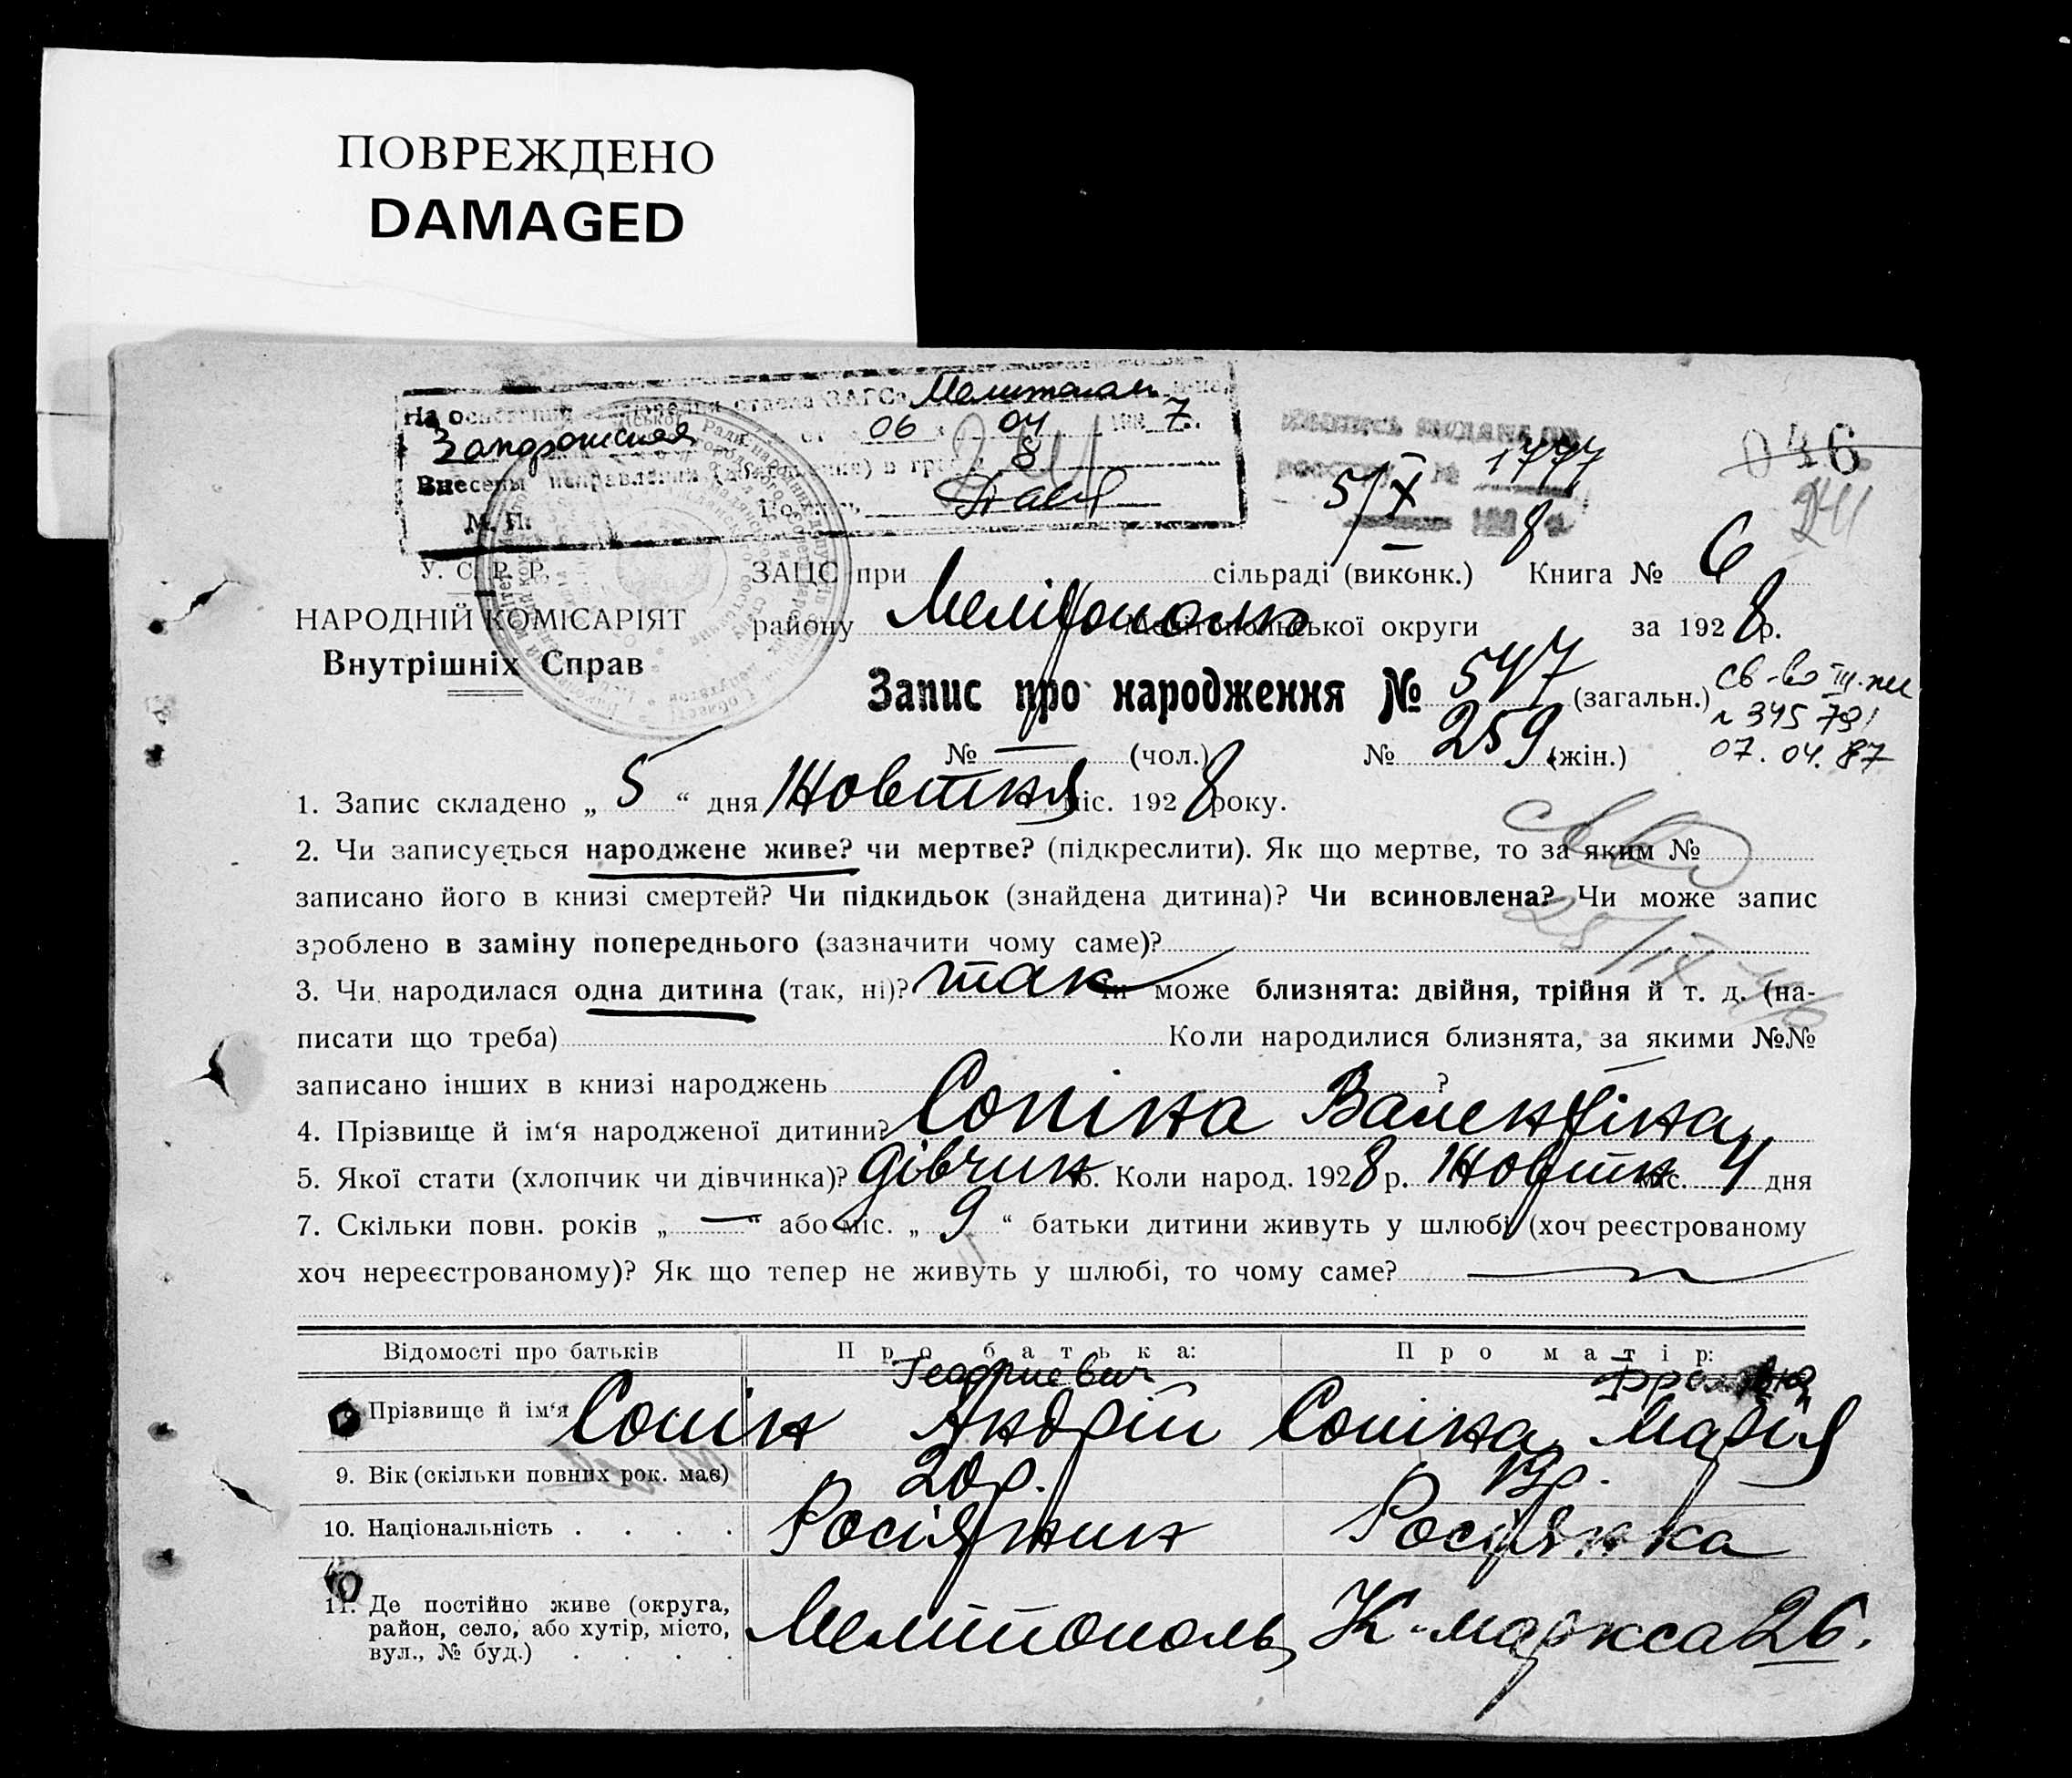 ПОВРЕЖДЕНО
DAMAGED
На основании отдела ЗАГС Мелитополь
Запорожская 06 04 7
Внесены исправления в гр 8
М. П.
1777
5/X
8
046
241
У. С. Р. Р.
НАРОДНІЙ КОМІСАРІЯТ
Внутрішніх Справ
ЗАЦС при сільраді (виконк.) Книга № 6
району Мелітополь Мелітопольської округи за 1928 р.
Запис про народження № 547 (загальн.)
№ — (чол.) № 259 (жін.)
св-во
№ 345
07. 04. 87
1. Запис складено „ 5 “ дня Жовтня міс. 1928 року.
2. Чи записується народжене живе? чи мертве? (підкреслити). Як що мертве, то за яким №
записано його в книзі смертей? Чи підкидьок (знайдена дитина)? Чи всиновлена? Чи може запис
зроблено в заміну попереднього (зазначити чому саме)?
3. Чи народилася одна дитина (так, ні)? так Чи може близнята: двійня, трійня й т. д. (на-
писати що треба) Коли народилися близнята, за якими №№
записано інших в книзі народжень ?
4. Прізвище й ім‘я народженої дитини? Сопіна Валентіна
5. Якої стати (хлопчик чи дівчинка)? дівчин 6. Коли народ. 1928 р. Жовтн міс. 4 дня
7. Скільки повн. років „ — “ або міс. „ 9 “ батьки дитини живуть у шлюбі (хоч реєстрованому
хоч нереєстрованому)? Як що тепер не живуть у шлюбі, то чому саме?
Відомості про батьків Про батька: Про матір:
Георгиевич
Прізвище й ім‘я Сопін Андрій Сопіна Марія
9. Вік (скільки повних рок. має) 20 р.
10. Національність . . . . Росіянин Росіянка
11. Де постійно живе (округа,
район, село, або хутір, місто,
вул., № буд.) . . . . Мелітополь К-маркса 26.